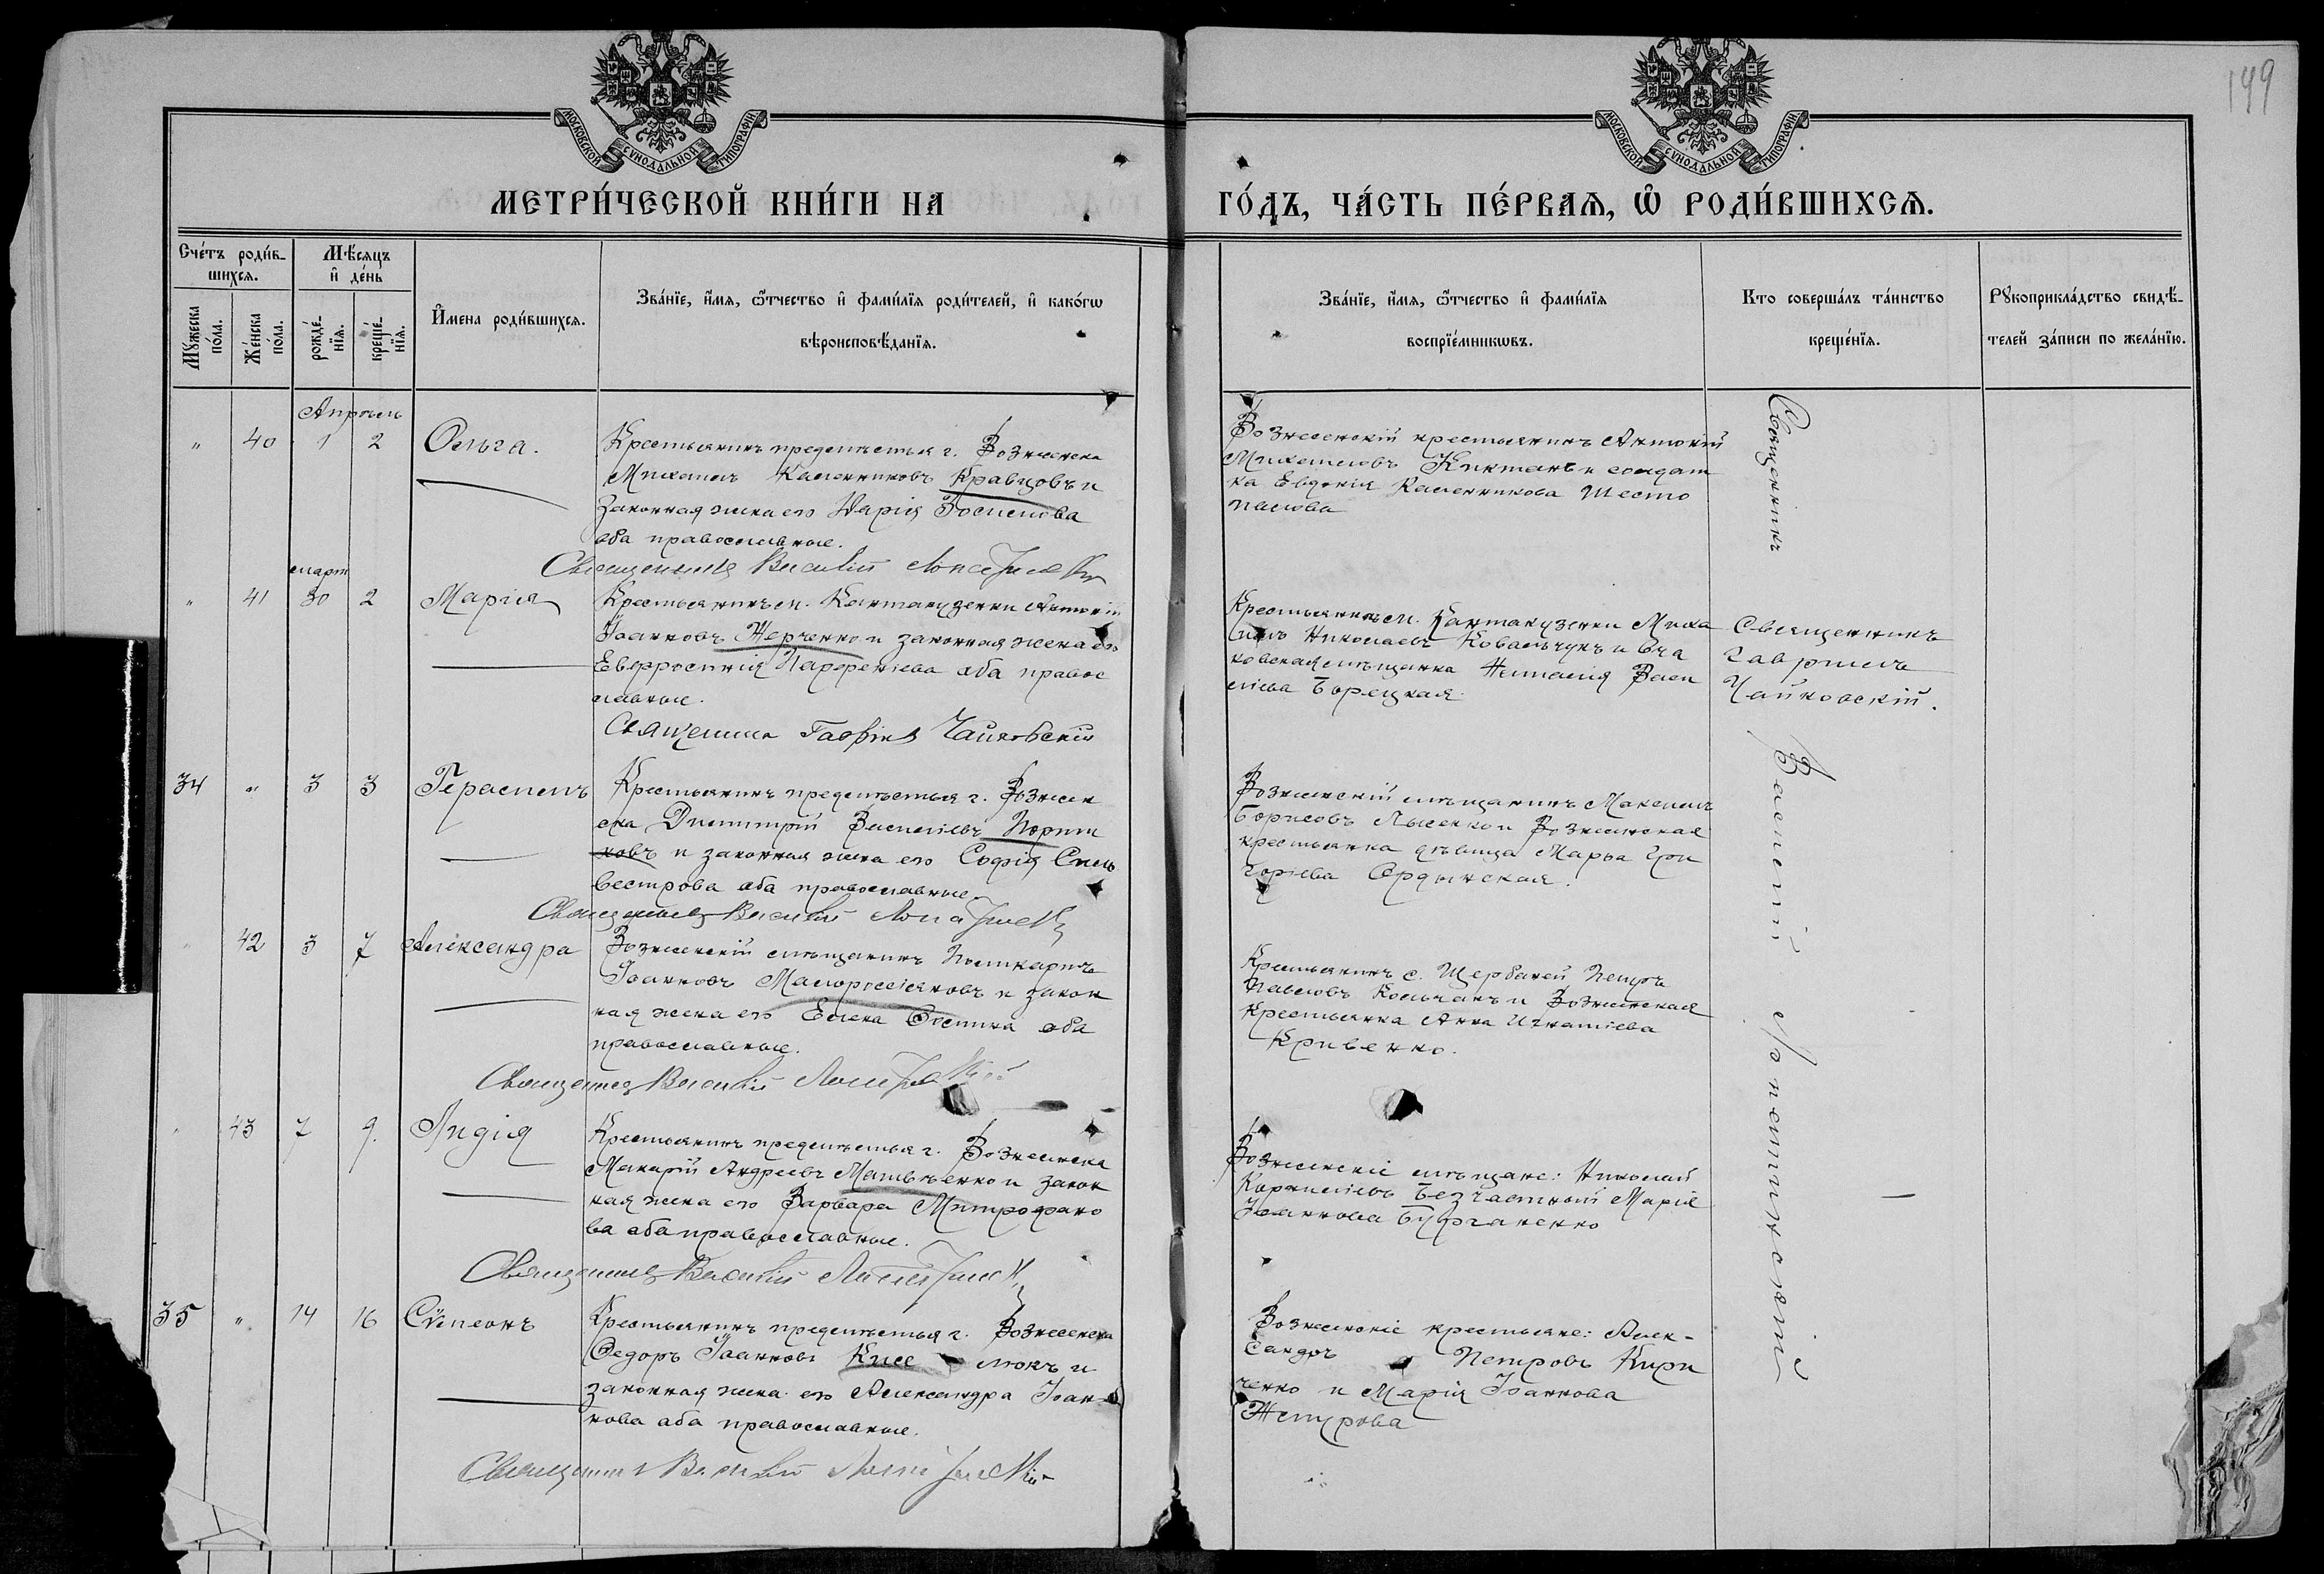 199
МОСКОВСКОЙ СѴНОДАЛЬНОЙ ТИПОГРАФІИ
МОСКОВСКОЙ СѴНОДАЛЬНОЙ ТИПОГРАФІИ
МЕТРИ́ЧЕСКОЙ КНИ́ГИ НА
ГО́ДЪ, ЧА́СТЬ ПЕ́РВАѦ, Ѡ РОДИ́ВШИХСѦ.
Сче́тъ роди́в-
шихсѧ.
Мꙋ́жеска
по́ла.
Же́нска
по́ла.
Мѣ́сѧцъ
и де́нь
рожде́-
нїѧ.
креще́-
нїѧ.
И҆мена роди́вшихсѧ.
Зва́нїе, и҆́мѧ, ѻ҆́тчество и҆ фами́лїѧ роди́телей, и҆ како́гѡ
вѣроисповѣ́данїѧ.
Зва́нїе, и҆́мѧ, ѻ҆́тчество и҆ фами́лїѧ
воспрїе́мникѡвъ.
Кто̀ соверша́лъ та́инство
креще́нїѧ.
Рꙋкоприкла́дство свидѣ́-
телей за́писи по жела́нїю.
Апрѣль
" 40 1 2 Ольга.
Крестьянинъ предмѣстья г. Вознесенска
Михаилъ Каленниковъ Кравцовъ и
законная жена его Марія
оба православные.
Священникъ Василій
Вознесенскій крестьянинъ Антоній
Михаиловъ Киктанъ и солдат
ка Евдокія Каленникова Шесто
палова
март
" 41 30 2 Марія
Крестьянинъ м. Кантакузенки Антоній
Іоанновъ Жерченко и законная жена его
Евфросинія Парфеніева оба правос
лавные.
Священникъ Гавріилъ Чайковскій
Крестьянинъ м. Кантакузенки Миха
илъ Николаевъ Ковальчукъ и Оча
ковская мѣщанка Наталія Васи
ліева Борецкая.
Священникъ
Гавріилъ
Чайковскій.
34 " 3 3 Герасимъ
Крестьянинъ предмѣстья г. Вознесен
ска Димитрій Василіевъ Портн
ковъ и законная жена его Софія Силь
вестрова оба православные.
Священникъ Василій
Вознесенскій мѣщанинъ Максимъ
Борисовъ Лысенко и Вознесенская
крестьянка дѣвица Марѳа Гри
горіева Сердынская.
42 3 7 Александра
Вознесенскій мѣщанинъ
Іоанновъ Малороссіяновъ и закон
ная жена его Елена оба
православные.
Священникъ Василій
Крестьянинъ с. Щербаней Петръ
Павловъ Колычанъ и Вознесенская
крестьянка Анна Игнатіева
Кривенко.
43 7 9. Лидія
Крестьянинъ предмѣстья г. Вознесенска
Макарій Андреевъ Матвѣенко и закон
ная жена его Варвара Митрофано
ва оба православные.
Священникъ Василій
Вознесенскіе мѣщане: Николай
Корниліевъ Безчастный Марія
Іоаннова Бурганенко
35 " 14 16 Сѵмеонъ
Крестьянинъ предмѣстья г. Вознесенска
Ѳедоръ Іоанновъ Кисе люкъ и
законная жена его Александра Іоан-
нова оба православные.
Священникъ Василій
Вознесенскіе крестьяне: Алек-
сандръ Петровъ Кири
ченко и Марія Іоаннова
Жетурова
Священникъ Василій